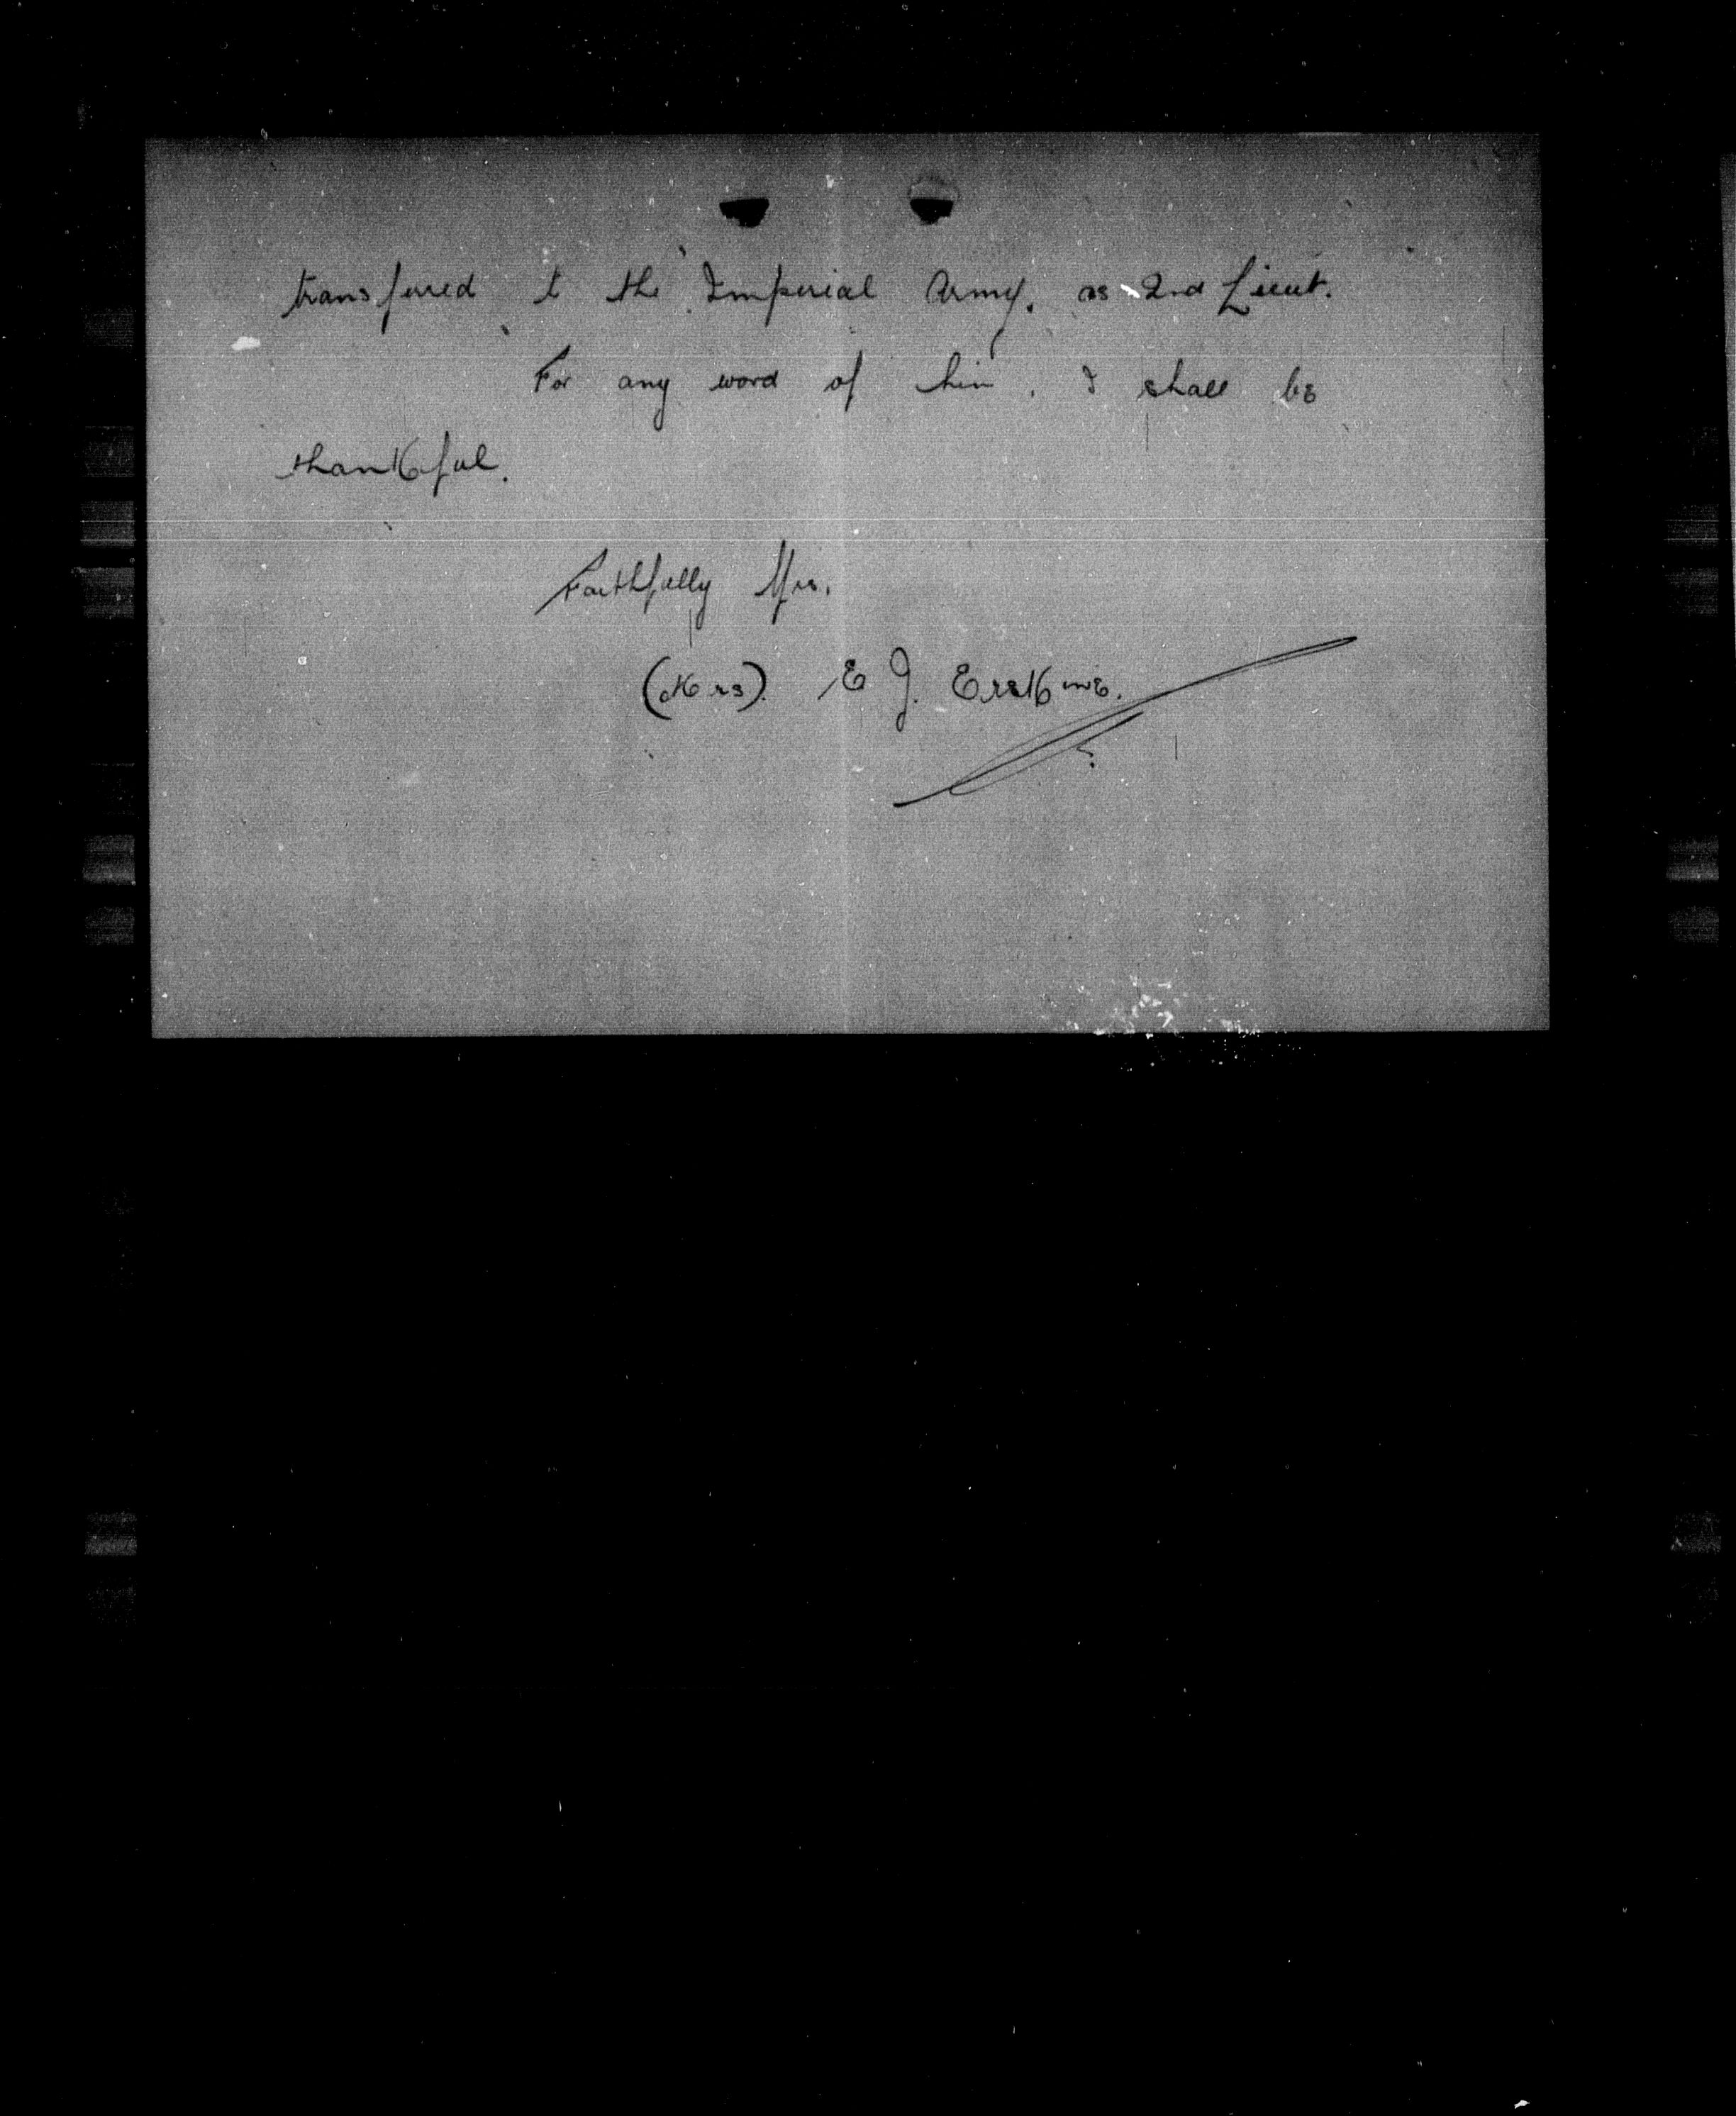 transferred to the Imperial Army. as 2nd Lieut.
For any word of him, I shall be
thankful.
Faithfully Yrs.
(Mrs). E J. Erskine.